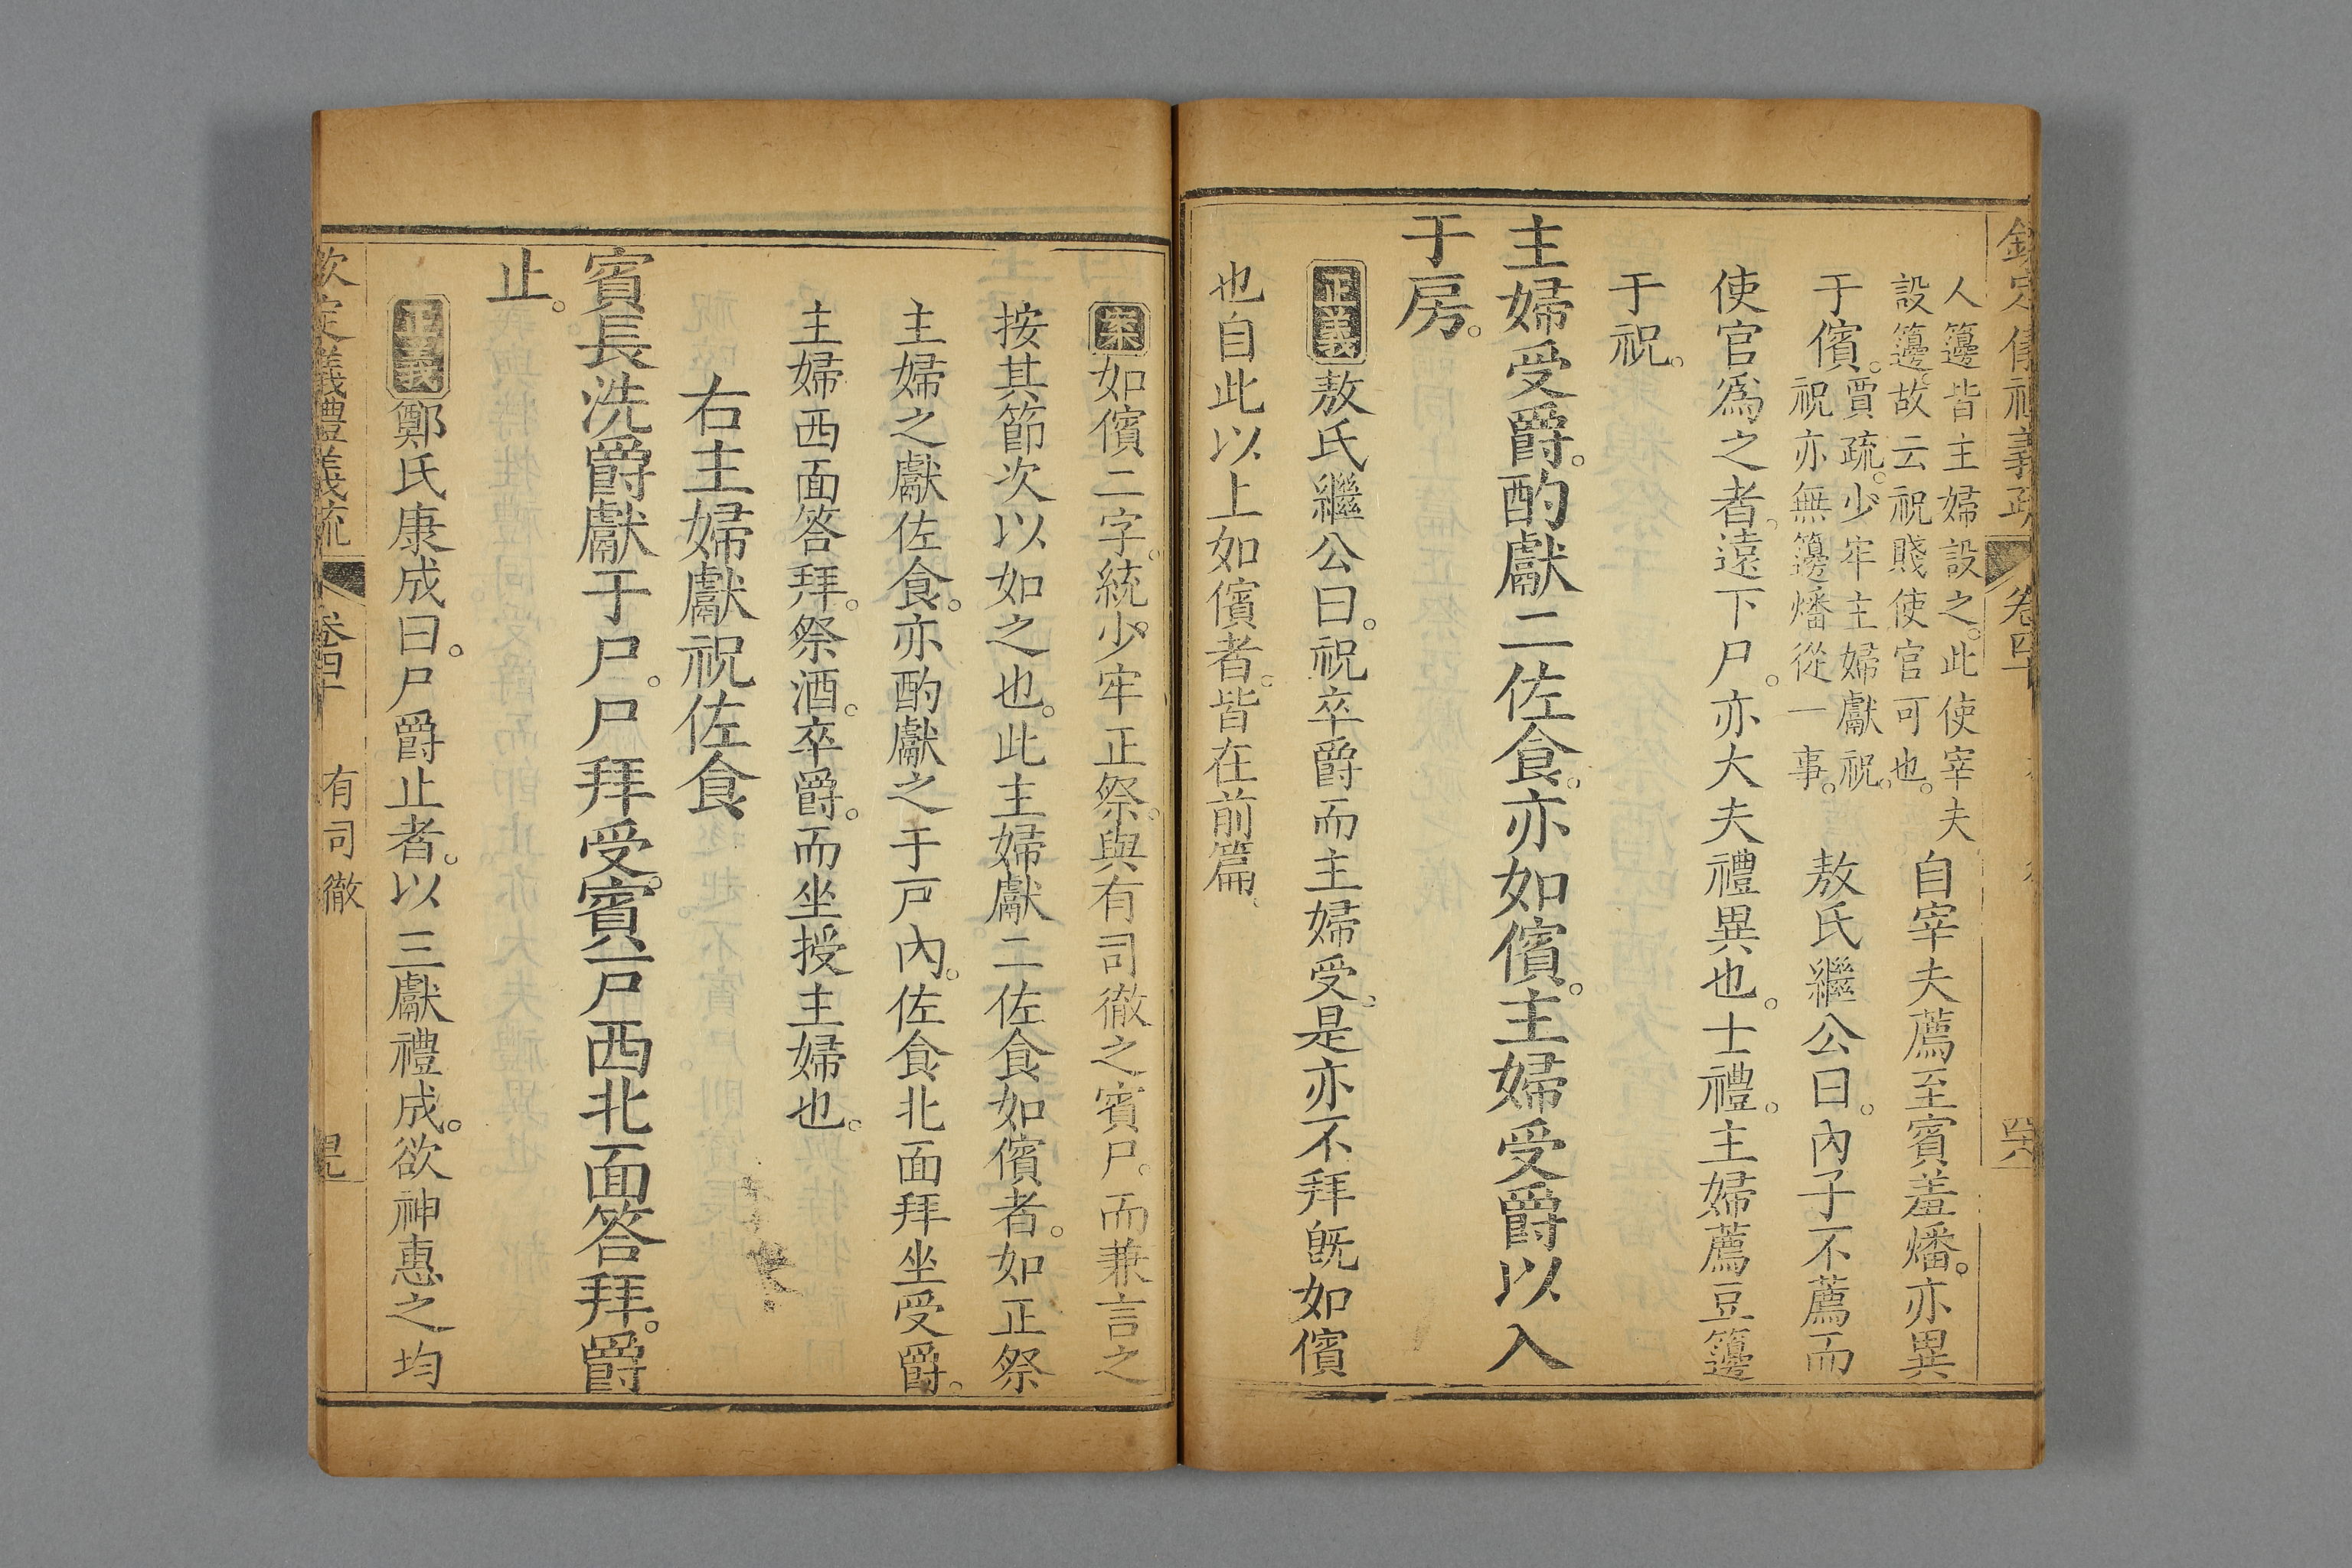 欽定儀禮義疏 卷四十
人籩皆主婦設之。此使宰夫
設籩。故云祝賤使官可也。
自宰夫薦至賓羞燔。亦異
于儐。
賈疏。少牢主婦獻祝。
祝亦無籩燔從一事。
敖氏繼公曰。內子不薦而
使官爲之者。遠下尸。亦大夫禮異也。士禮。主婦薦豆籩
于祝。
主婦受爵。酌獻二佐食。亦如儐。主婦受爵以入
于房。
正義敖氏繼公曰。祝卒爵而主婦受。是亦不拜旣如儐
也自此以上如儐者。皆在前篇。
案如儐二字。統少牢正祭。與有司徹之賓尸。而兼言之
按其節次以如之也。此主婦獻二佐食如儐者。如正祭
主婦之獻佐食。亦酌獻之于戸內。佐食北面拜坐受爵。
主婦西面答拜。祭酒。卒爵。而坐授主婦也。
右主婦獻祝佐食
賓長洗爵獻于尸。尸拜受。賓戸西北面答拜。爵
止。
正義鄭氏康成曰。尸爵止者。以三獻禮成。欲神惠之均
欽定儀禮義疏 卷四十 有司徹